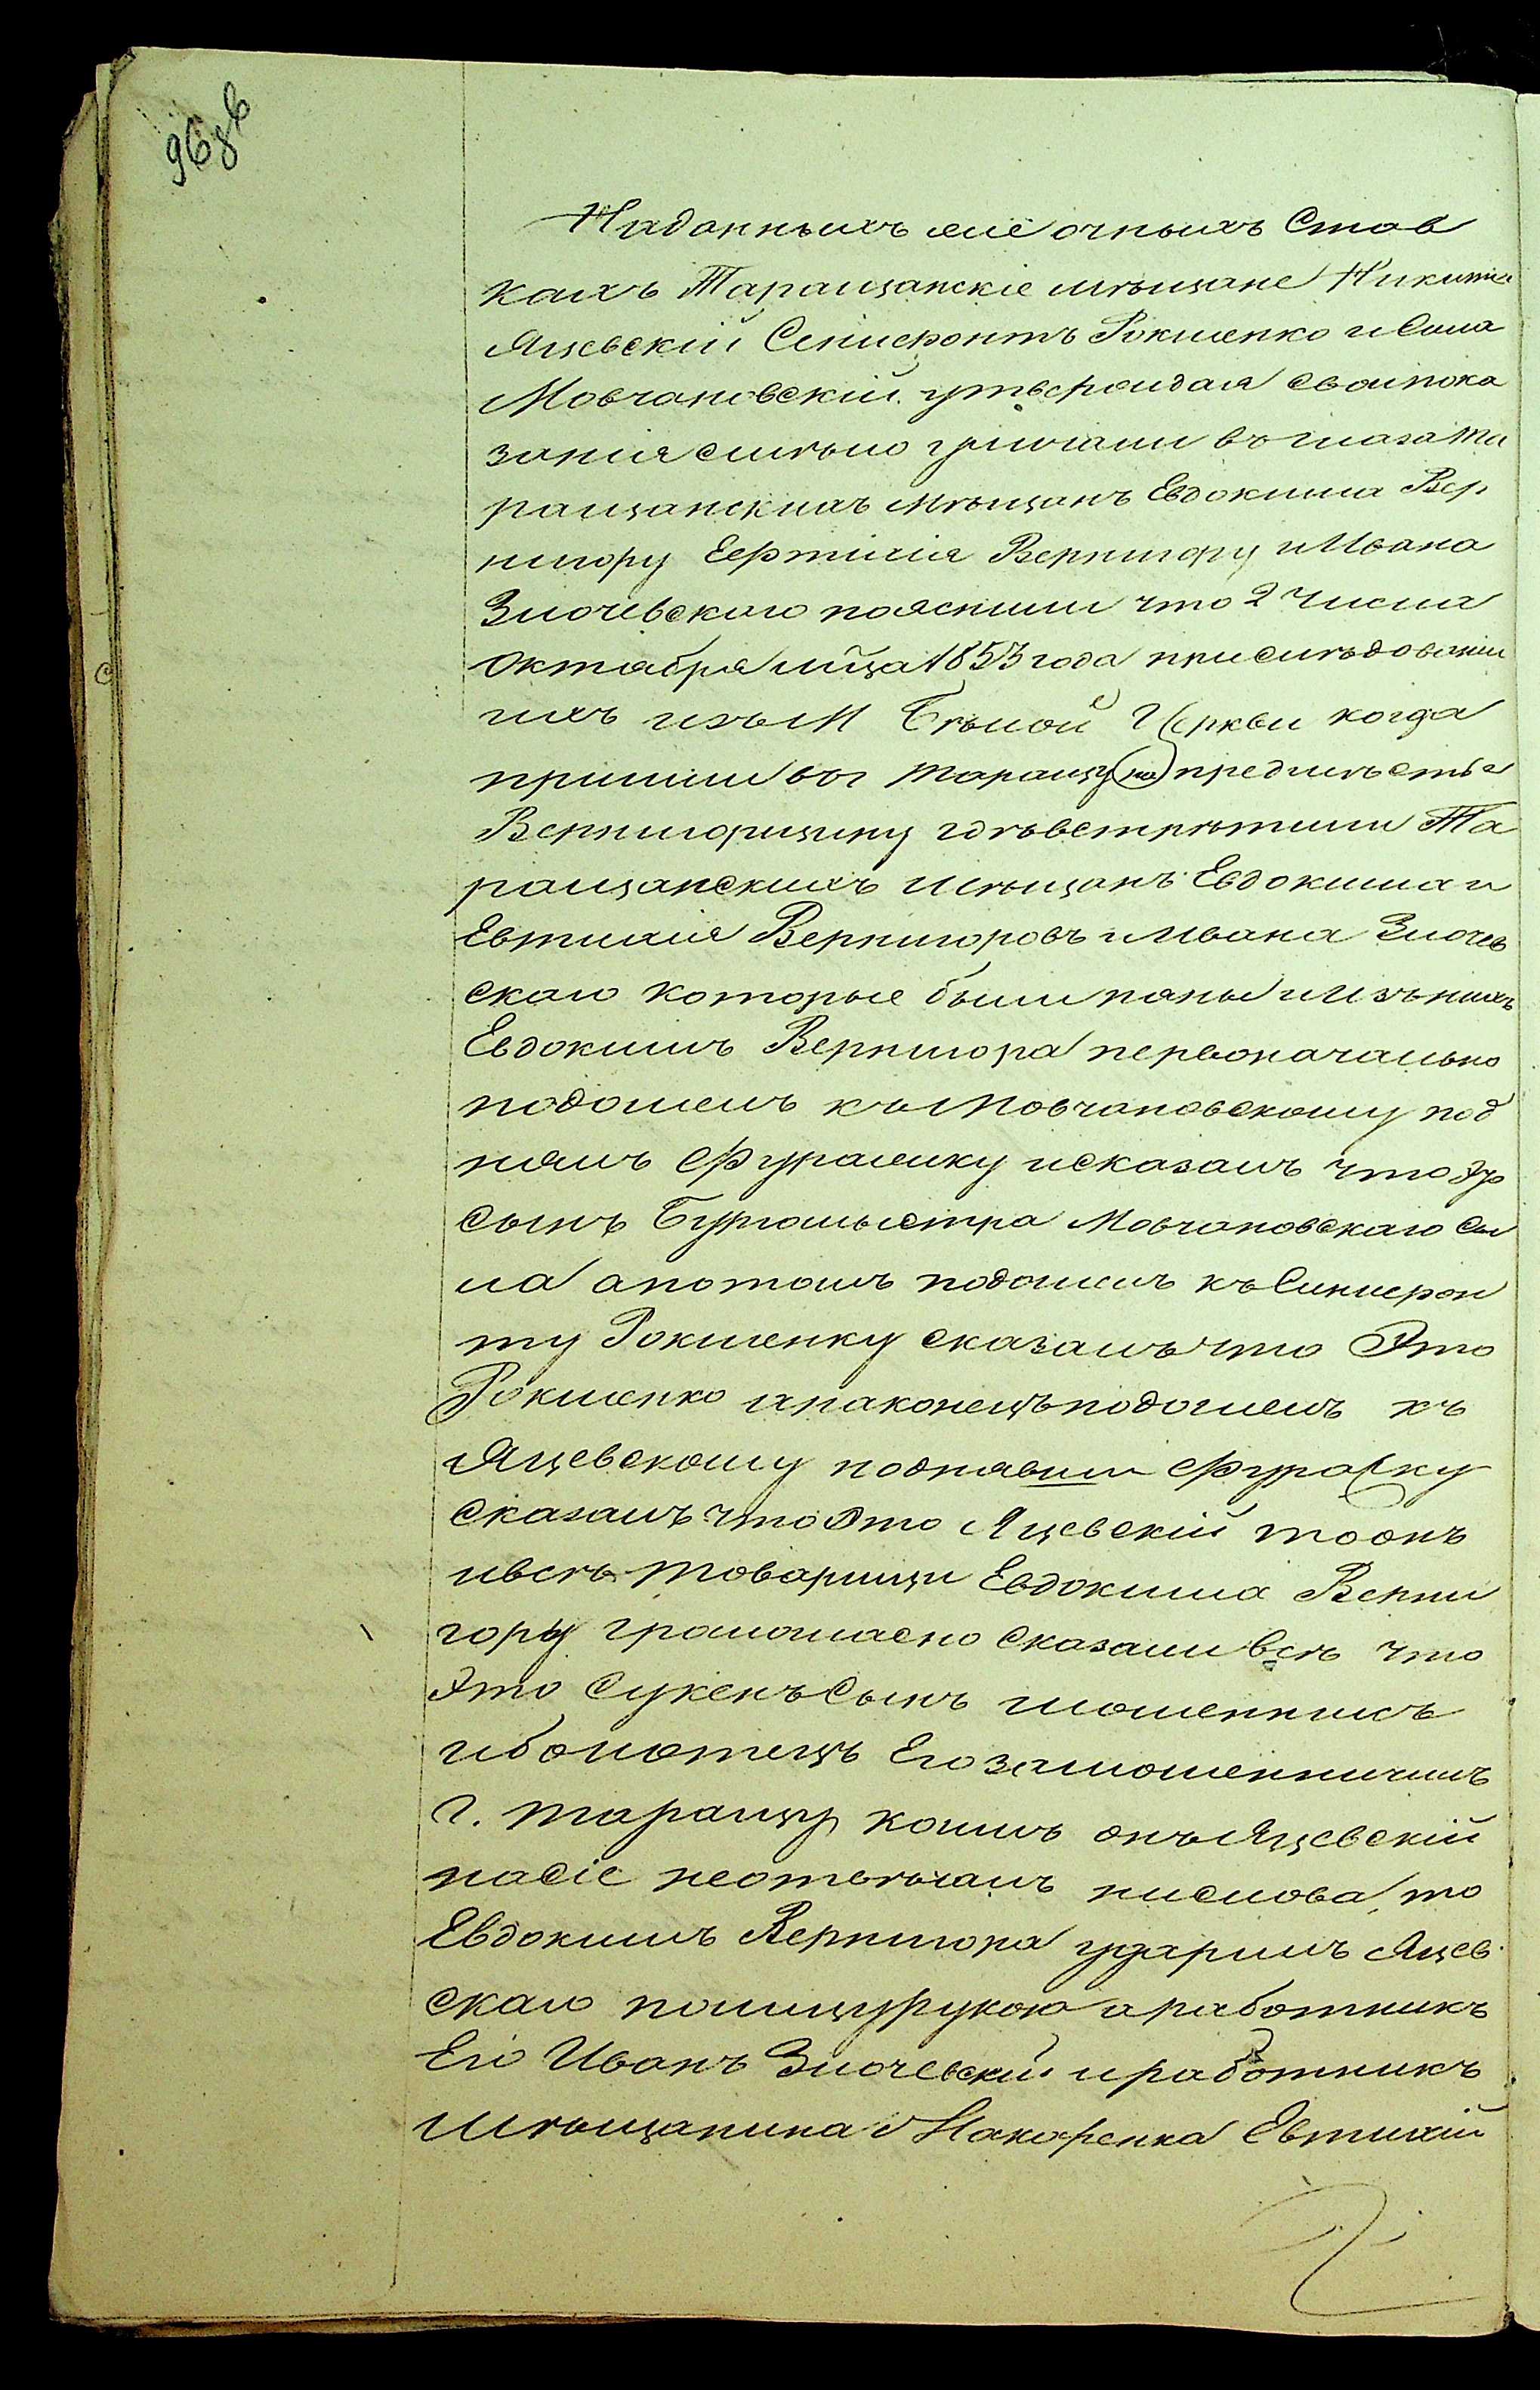 96 об
На данныхъ ими очныхъ Став
кахъ Таращанскіе мѣщане Никита
Яцевскій Ксенефонтъ Рокленко и Сила
Мовчановскій утверждая свои пока
занія смѣло уличали въ глаза Та
ращанскихъ мѣщанъ Евдокима Вер
нигору Евтихія Вернигору и Ивана
Злочевскаго пояснили что 2 числа
Октября мца 1853 года при слѣдованіи
ихъ изъ М Бѣлой Церкви когда
пришли во г Таращу (на) предмѣстье
Вернигорщину гдѣ встрѣтили Та
ращанскихъ мѣщанъ Евдокима и
Евтихія Вернигоровъ и Ивана Злочев
скаго которые были пяны и изъ нихъ
Евдокимъ Вернигора первоначально
подошелъ къ Мовчановскому под
нялъ фуражку и сказалъ что Эт
сынъ Бургомыстра Мовчановскаго Си
ла а потомъ подошелъ къ Синиерон
ту Рокленку сказалъ что Это
Рокленко и наконецъ подошелъ къ
Яцевскому поднявши фуражку
сказалъ что Это Яцевскій то онъ
и всѣ товарищи Евдокима Верни
гору громогласно сказали всѣ что
Это Сукенъ Сынъ мошенникъ
ибо и отецъ Его замошенничилъ
г. Таращу, колиъ онъ Яцевскій
на сіе неотвѣчалъ ни слова, то
Евдокимъ Вернигора ударилъ Яцев
скаго по лицу рукою а работникъ
Его Иванъ Злочевскій и работникъ
мѣщанина Макаренка Евтихій